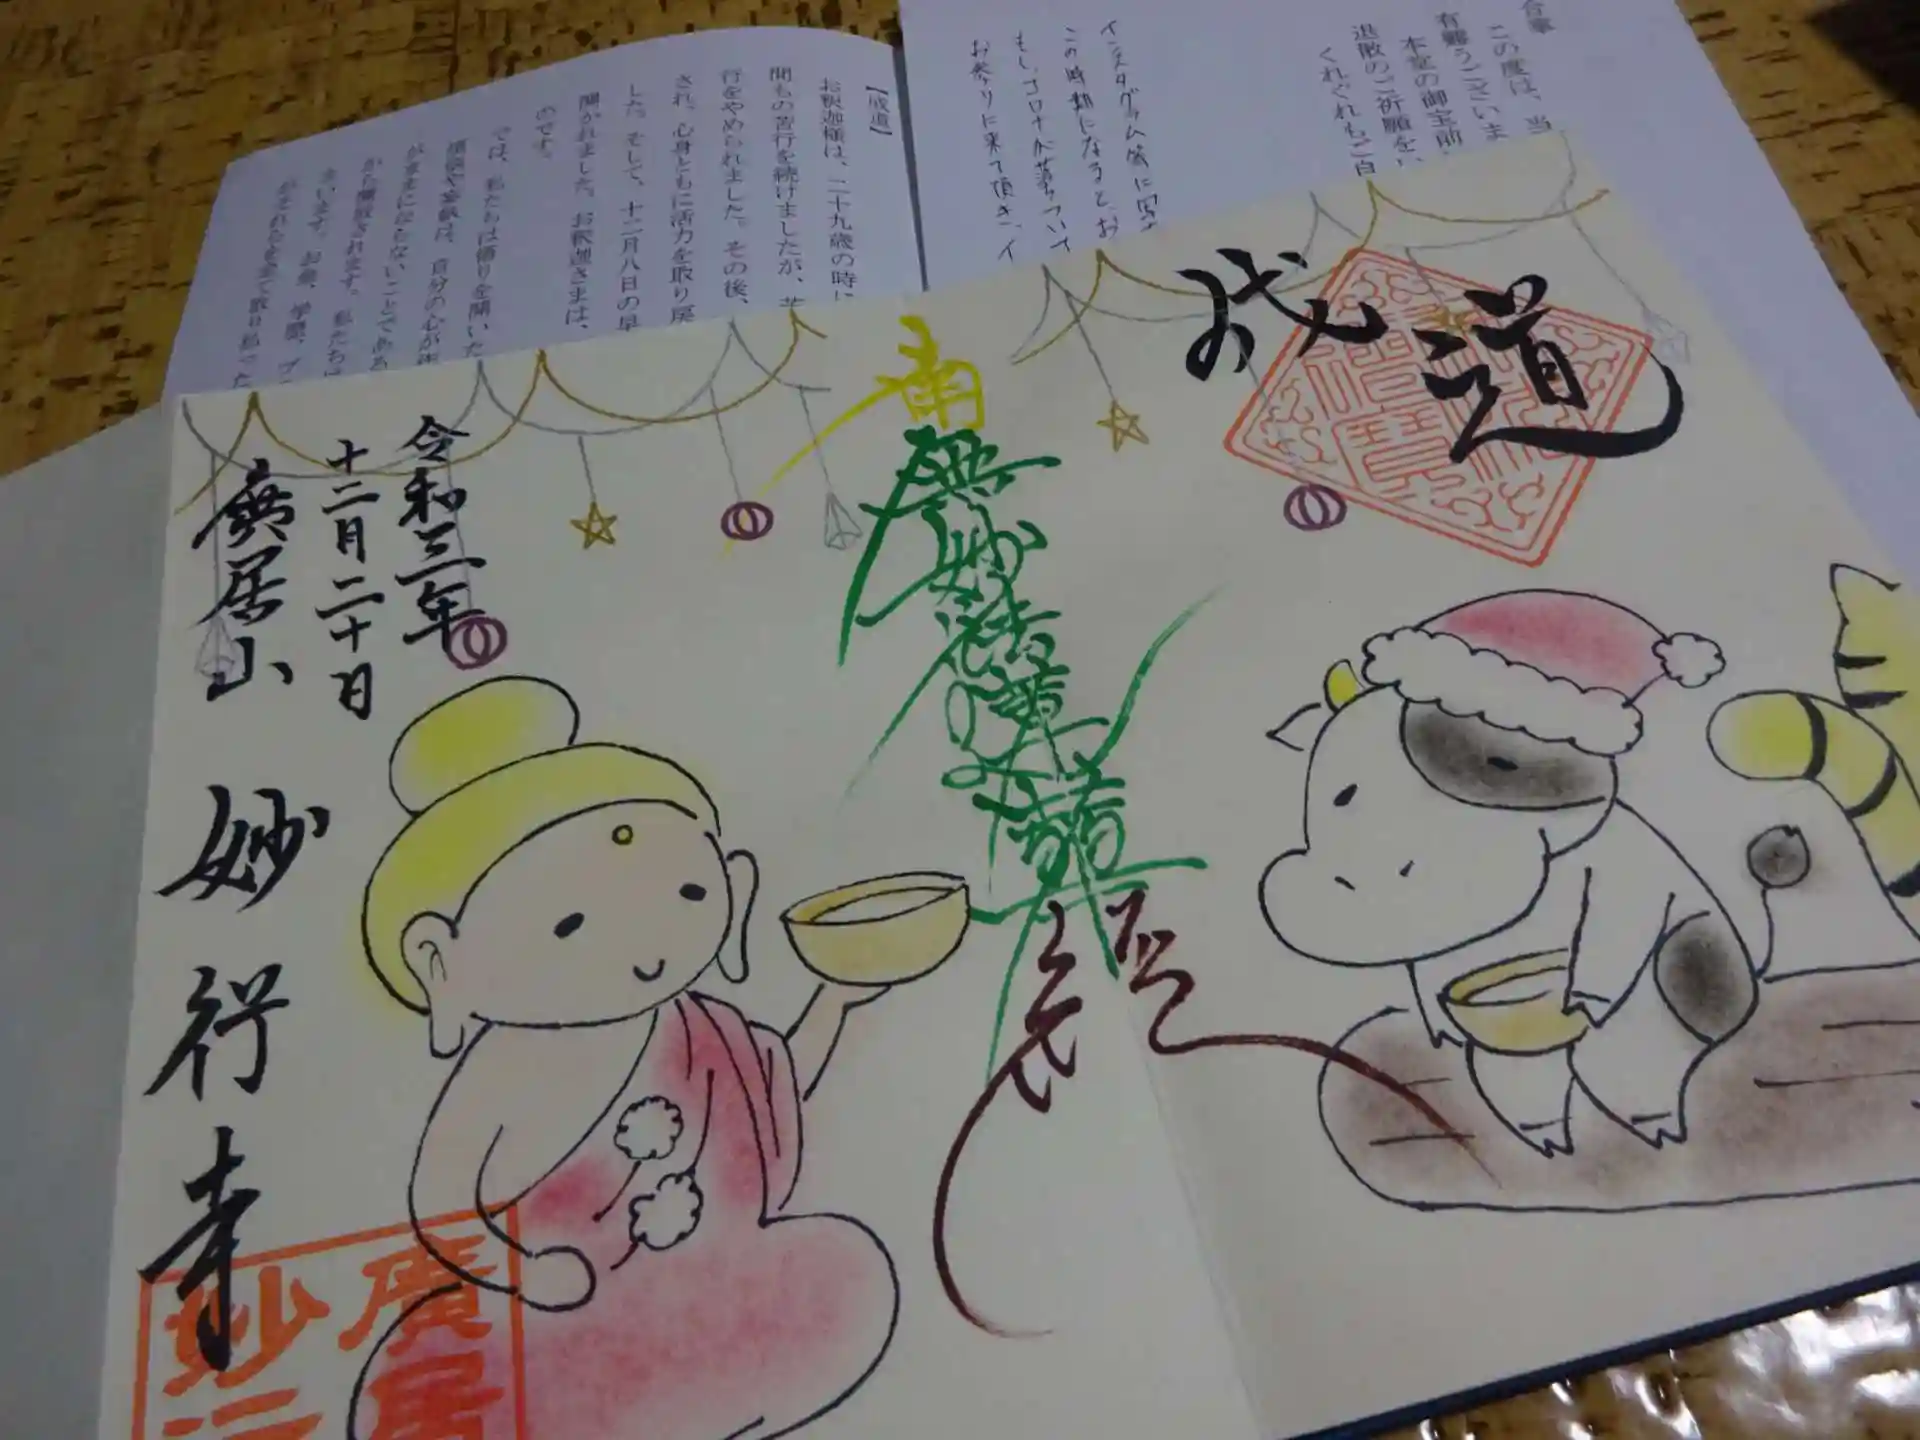 合掌
この度は、当
有難うございま
本堂の御宝前
退散のご祈願をい
くれぐれもご自
インスタグラム等に写
この時期になると、お
もし、コロナが落ちついて
お参りに来て頂き、イ
【成道】
お釈迦様は、二十九歳の時に
間もの苦行を続けましたが、苦
行をやめられました。その後、
され、心身ともに活力を取り戻
した。そして、十二月八日の早
開かれました。お釈迦さまは、
のです。
では、私たちは悟りを開いた
煩悩や妄執は、自分の心が
がままにならないことである
から解放されます。私たちは
まいます。お金、学歴、プ
成道
南無妙法蓮華経
令和三年
十二月二十日
廣居山
妙行寺
廣居
妙行